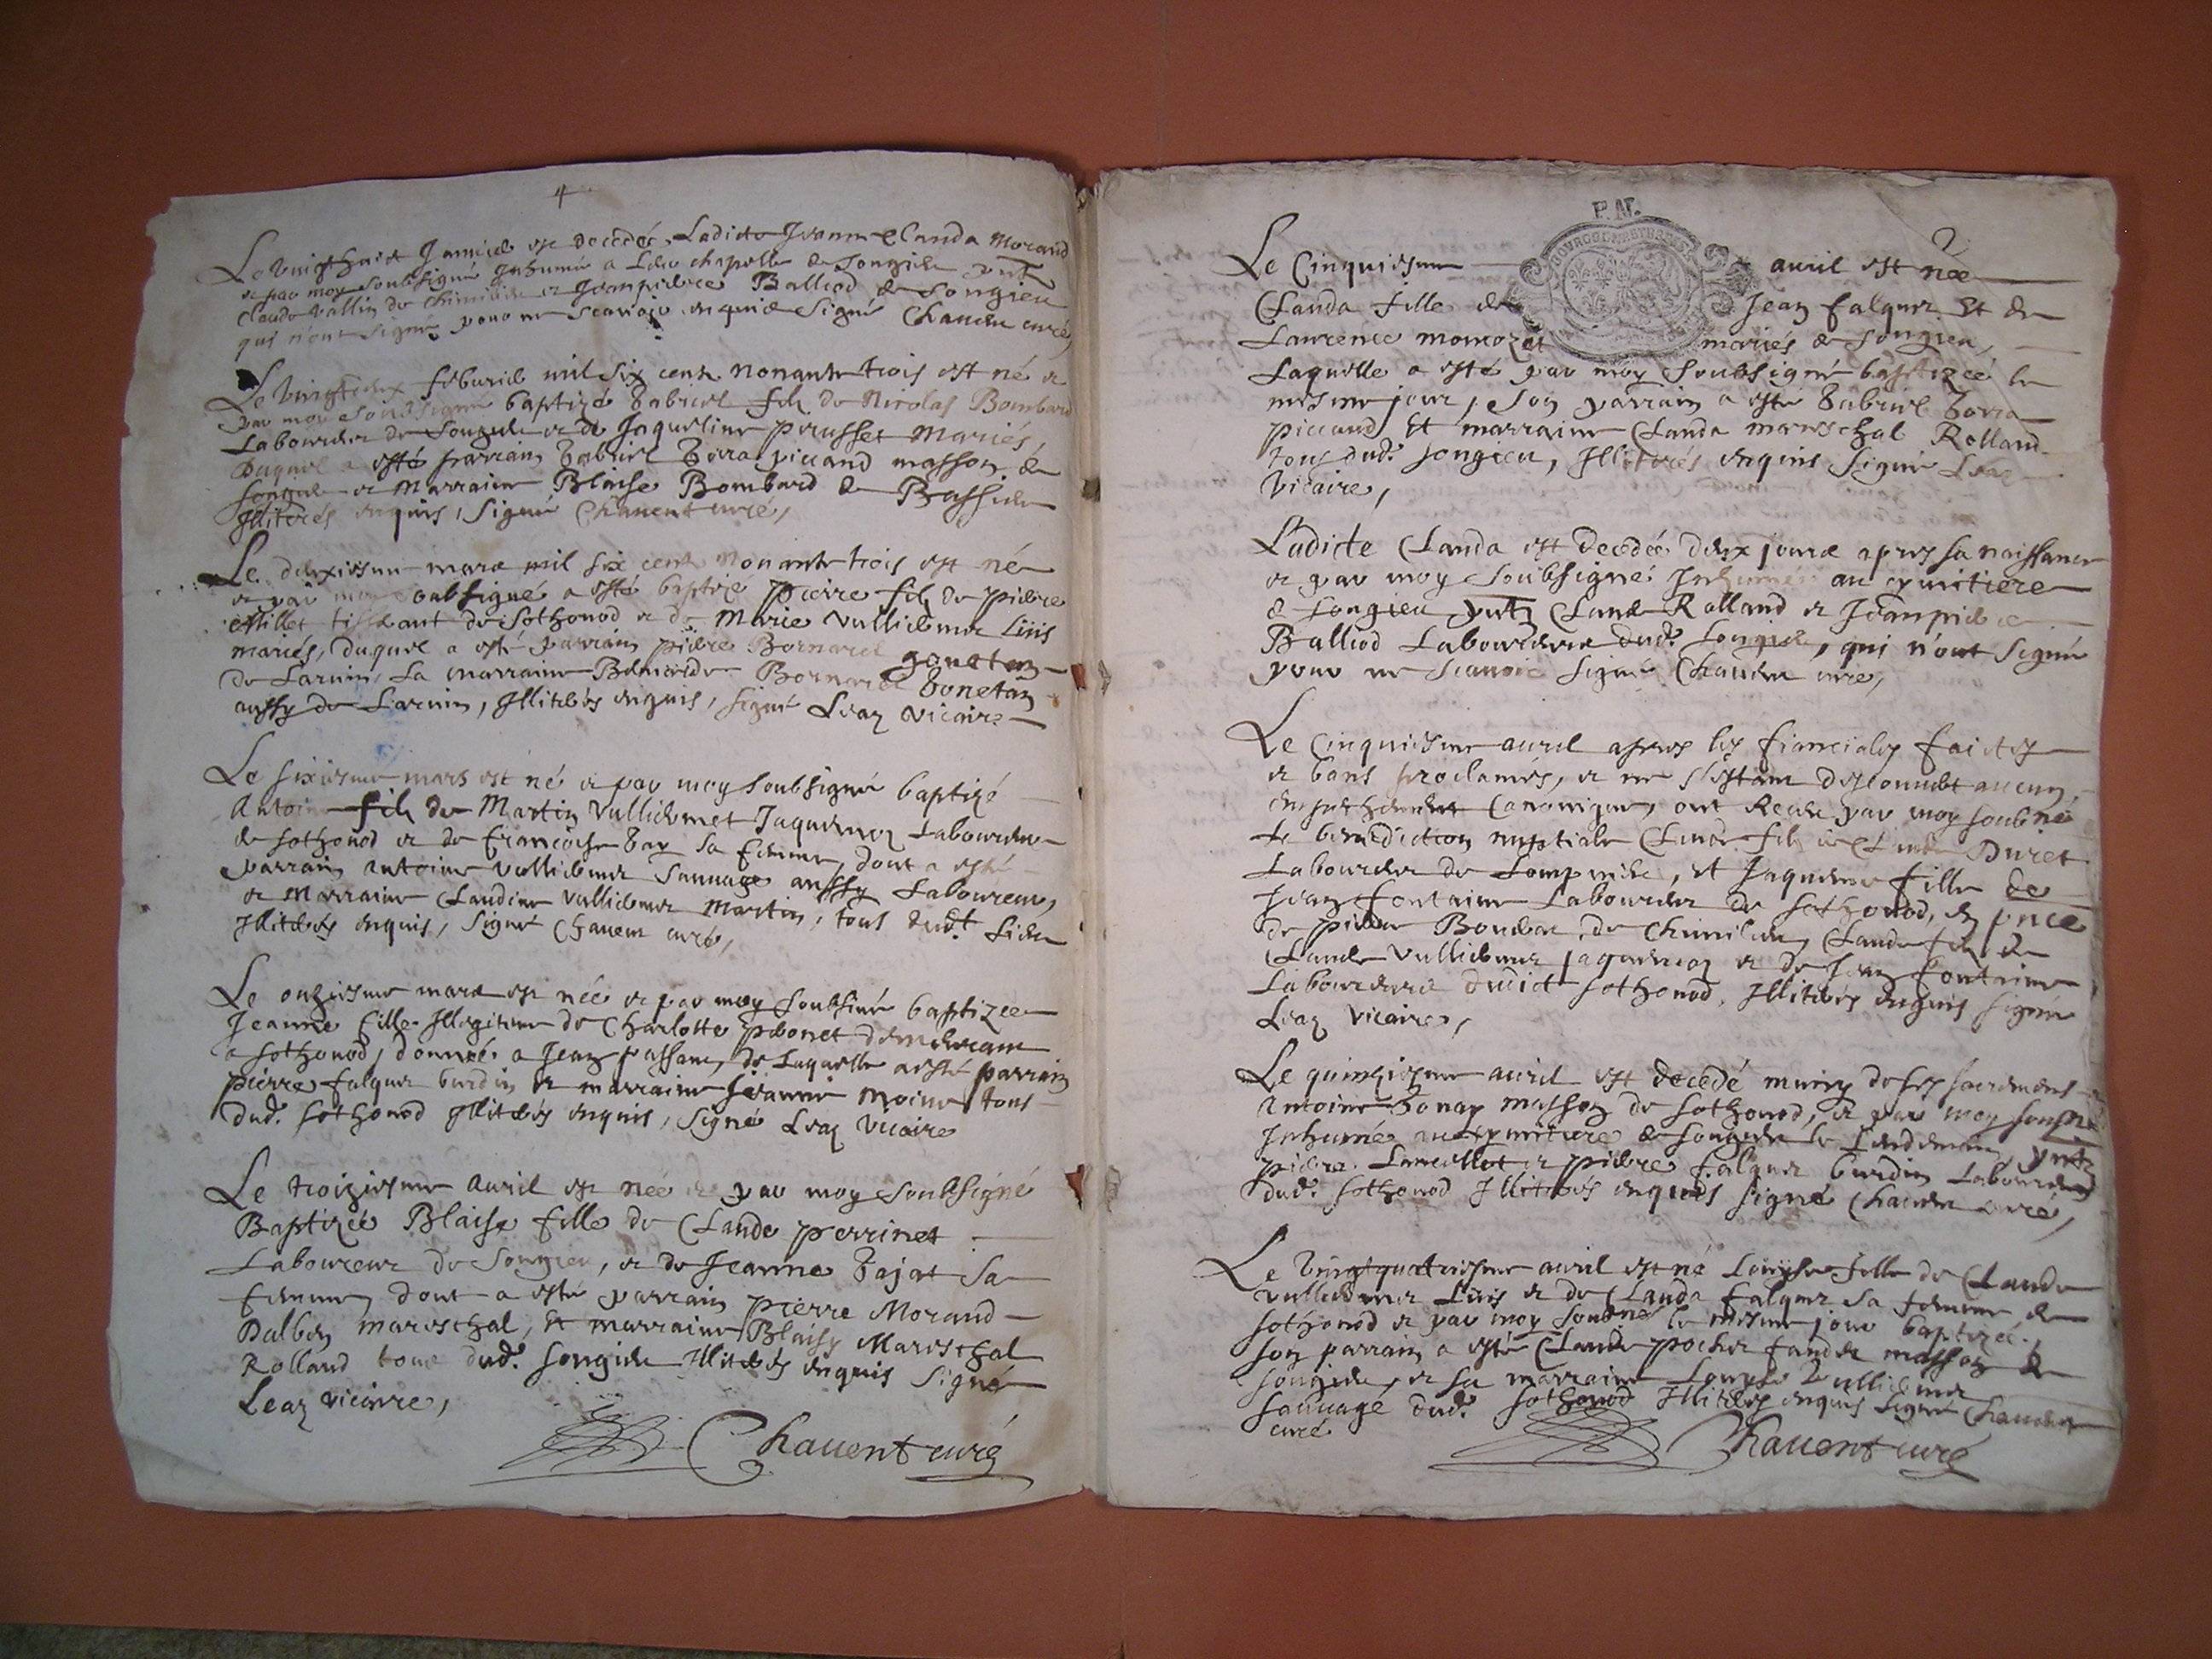 4
Le vingthuict Janvier est decedée Ladicte Jeanne Clauda Morand
et par moy soubsigné Inhumée a Leur chapelle de Songieu pntz
Claude Vallin de et Jeanpierre Balliod de Songieu
qui n'ont signé pour ne sçavoir enquis signé Chavent curé
Le vingtdeux febvrier mil six cent nonante trois est né et
par moy soubsigné baptizé Gabriel fils de Nicolas Bombard
Laboureur de Songieu et de Jaqueline perusset Mariés,
Duquel a esté parrain Gabriel Gorra piccand masson de
Songieu et Marraine Blaise Bombard de Bassieu
Illiterés enquis, signé Chavent curé,
Le deuxiesme mars mil six cent nonante trois est né
et par moy soubsigné a esté baptizé Pierre fils de pierre
Millet tisserant de Sothonod et de Marie Vulliemer Luis
mariés, duquel a esté parrain pierre Bornarel gonetan
de Larnin, La marraine Bernarde Bornarel Gonetan
aussy de Larnin, Illiterés enquis, signé Lean vicaire
Le sixiesme mars est né et par moy soubsigné baptizé
Antoine fils de Martin Vulliemet Jaquemoz Laboureur
de Sothonod et de francoise Gay sa femme, dont a esté
parrain antoine Vulliemer Sauvage aussy Laboureur,
et Marraine Claudine Vulliemer Martin, tous dudt Lieu
Illiterés enquis, signé Chavent curé,
Le onziesme mars est née et par moy soubsiné baptizée
Jeanne fille Illegitime de Charlotte peonet demeurant
a Sothonod, donnée a Jean passant, de Laquelle a esté parrain
pierre falquer burdin et marraine Jeanne Moine tous
dud. Sothonod Illiterés enquis, signé Lean vicaire
Le troiziesme avril est née et par moy soubsigné
Baptizée Blaise fille de Claude perrinet
Laboureur de Songieu, et de Jeanne Gajat sa
femme, dont a esté parrain pierre Morand
Dalben mareschal, Et marraine Blaise Mareschal
Rolland tous dud. Songieu Illiterés enquis signé
Lean vicaire,
Chavent curé
P. M.
2
Le Cinquiesme avril est née
Clauda fille de Jean falquer Et de
Laurence momozet mariés de Songieu,
Laquelle a esté par moy soubsigné baptizée le
mesme jour, son parrain a esté Gabriel Gorra
piccand Et marraine Clauda mareschal Rolland
tous dud. Songieu, Illiterés enquis signé Lean
Vicaire,
Ladicte Clauda est decedée deux jours apres sa naissance
et par moy soubsigné Inhumée au cymitiere
de Songieu pntz Claude Rolland et Jeanpierre
Balliod Laboureurs dud. Songieu, qui n'ont signé
pour ne scavoir signé Chavent curé,
Le Cinquiesme avril apres les fiancialles faictes
et bans proclamés, et ne s'estant descouvert aucun
empechement Canonique, ont Receu par moy soubné
La benediction nuptiale Claude fils de Claude Duret
Laboureur de Lompnieu, et Jaqueme fille de
Jean fontaine Laboureur de Sothonod, en pnce
de pierre Bondat de Chimilieu, Claude fils de
Claude Vulliemer jaquemoz et de Jean fontaine
Laboureurs dudict Sothonod, Illiterés enquis signé
Lean vicaire,
Le quinziesme avril est decedé muny de ses sacremens
Antoine Gonay Masson de Sothonod, et par moy soubsné
Inhumé au cymitiere de Songieu le Lendemain, pntz
pierre Lancellot et pierre falquer burdin Laboureurs
dud. Sothonod Illiterés enquis signé Chavent curé,
Le vingtquatriesme avril est né Louyse fille de Claude
Vulliemer Luis et de Clauda falquer sa femme de
Sothonod et par moy soubné le mesme jour baptizée,
son parrain a esté Claude pochet masson de
Songieu, et sa marraine Louyse Vulliemer
Sauvage dud. Sothonod Illiterés enquis signé Chavent
curé
Chavent curé